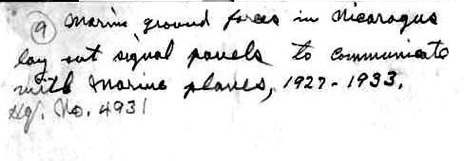 9 Marine ground forces in Nicaragua
lay out signal panels to communicate
with Marine planes, 1927-1933.
Neg. No. 4931